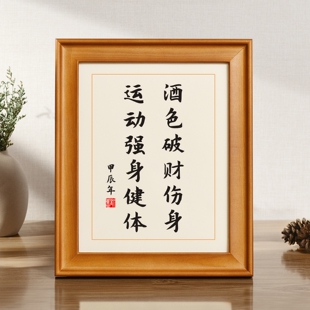 酒色破财伤身
运动强身健体
甲辰年